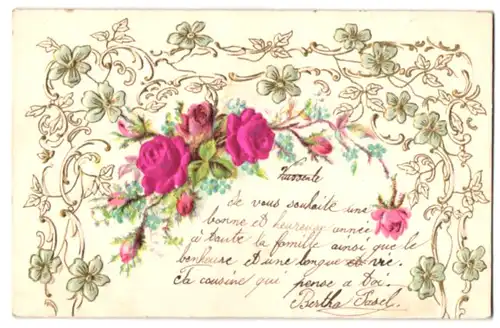 je vous souhaite une
bonne et heureuse année
à toute la famille ainsi que le
bonheur et une longue vie.
Ta cousine qui pense a toi.
Bertha